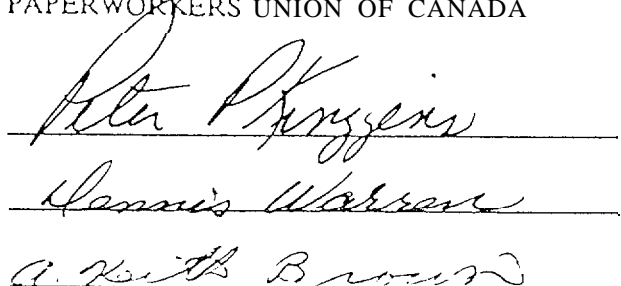 PAPERWORKERS UNION OF CANADA
Peter P
Dennis Warren
A. Keith Brown